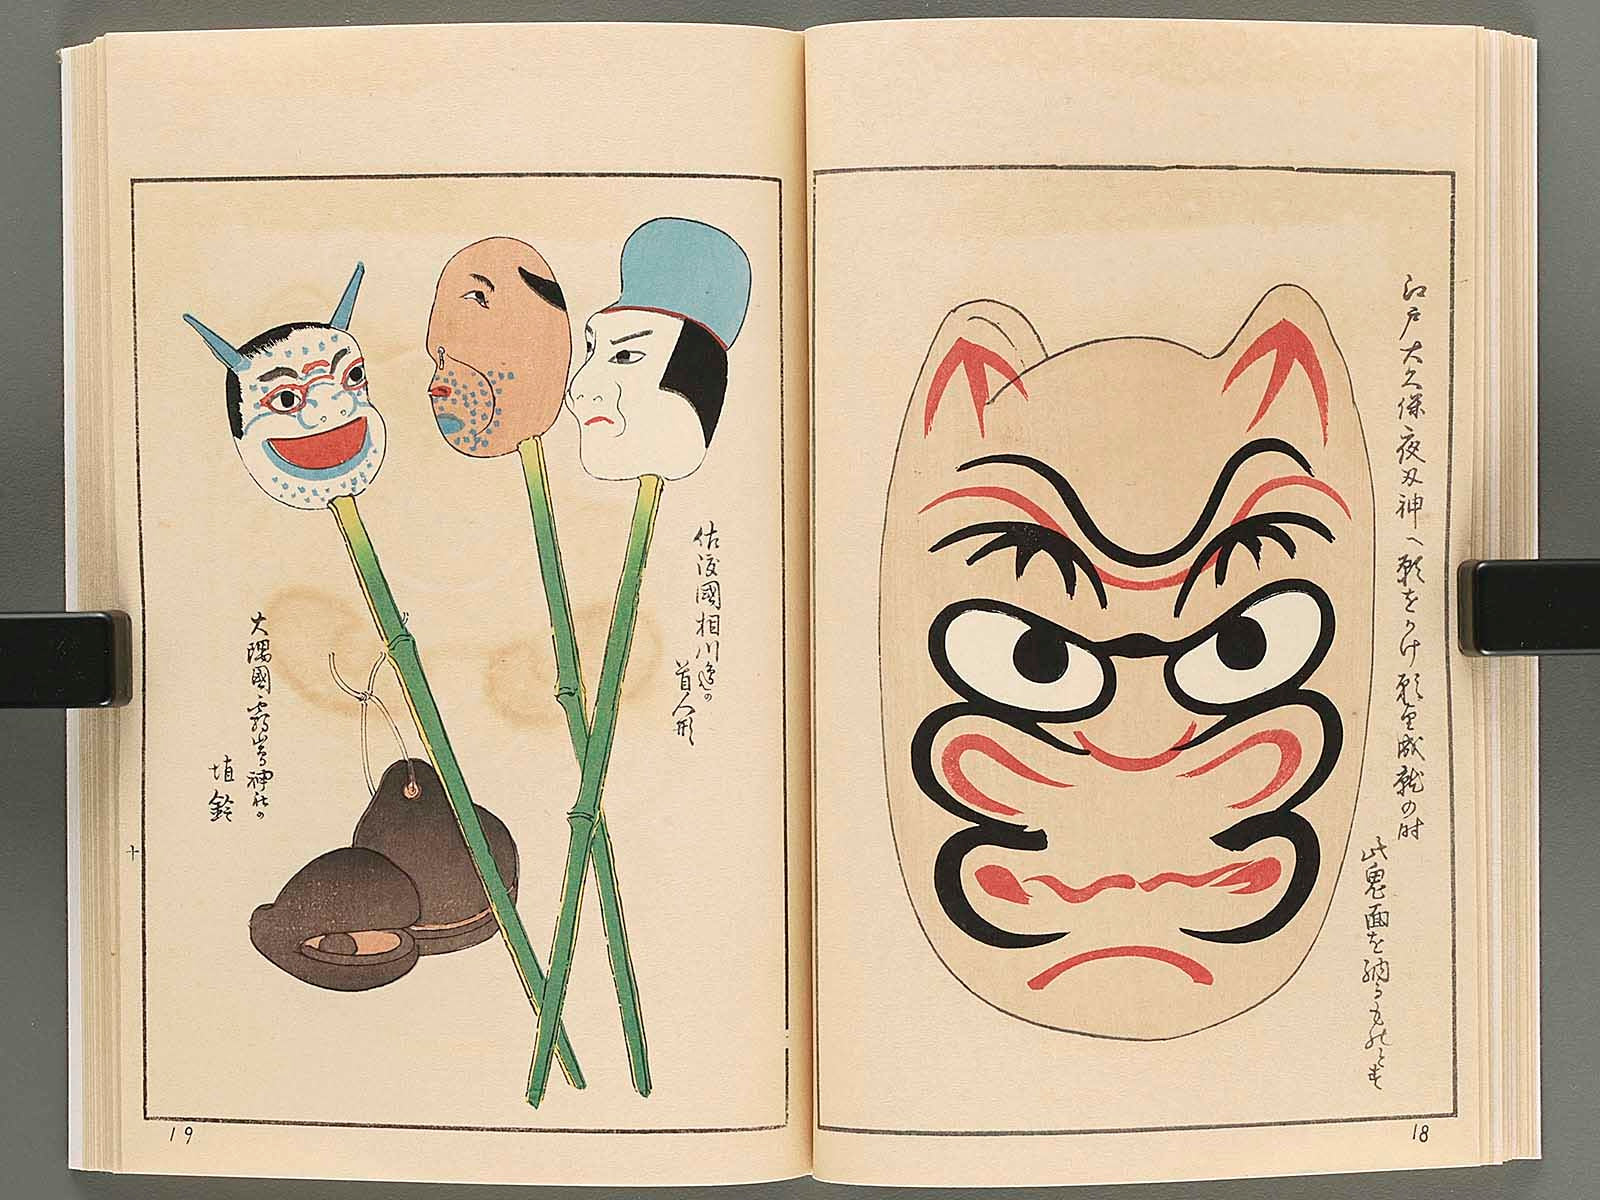 江戸大久保夜叉神へ願をかけ願望成就の時
此鬼面を納るものとす
18
佐渡國相川邊の
首人形
大隅國霧島神社の
埴鈴
十
19